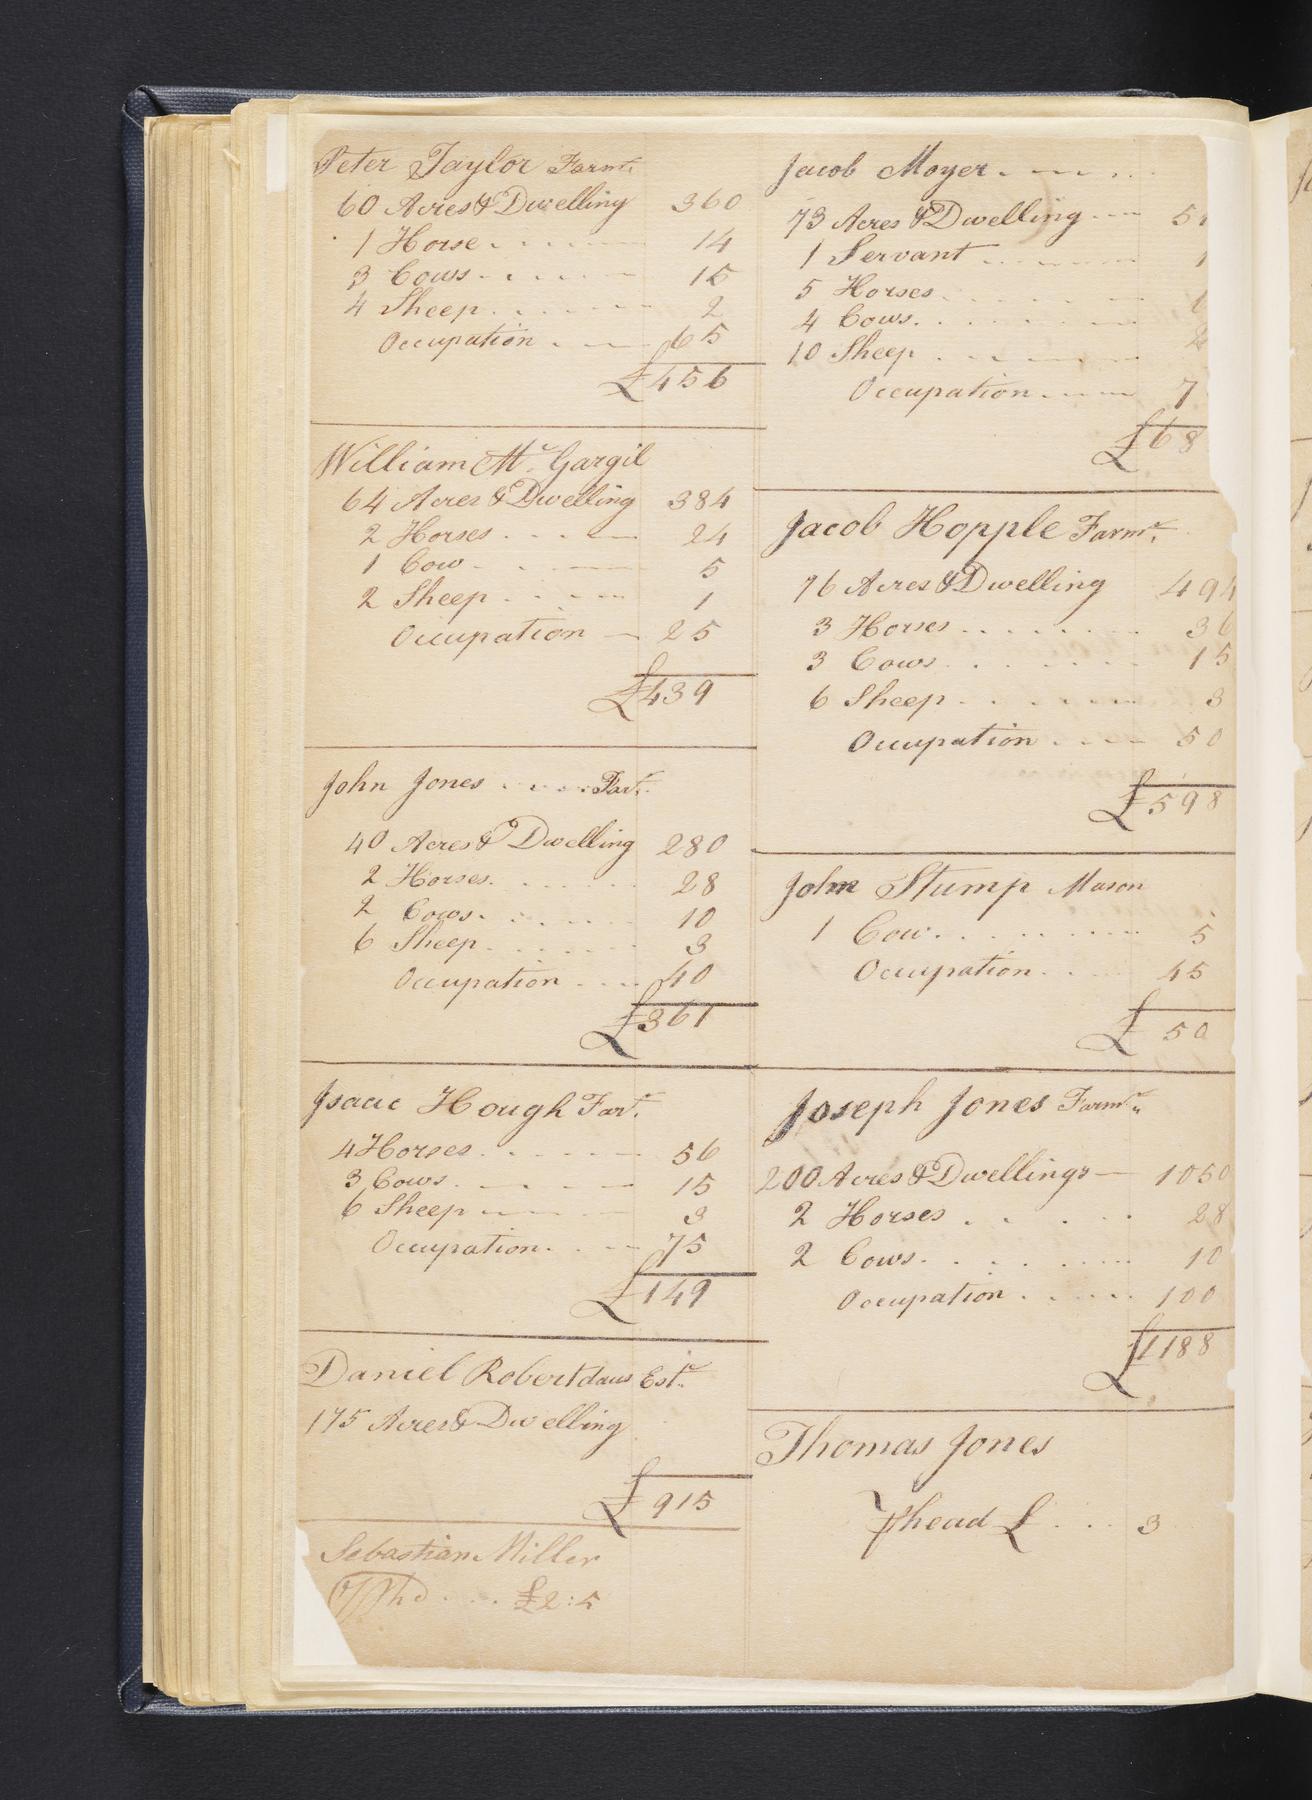 Peter Taylor Farmr.
60 Acres & Dwelling 360
1 Horse 14
3 Cows 15
4 Sheep 2
Occupation 65
£456
William Mc. Gargil
64 Acres & Dwelling 384
2 Horses 24
1 Cow 5
2 Sheep 1
Occupation 25
£439
John Jones Far.
40 Acres & Dwelling 280
2 Horses 28
2 Cows 10
6 Sheep 3
Occupation 40
£361
Isaac Hough Far.
4 Horses 56
3 Cows 15
6 Sheep 3
Occupation 75
£149
Daniel Robertdaus Est.
175 Acres & Dwelling
£915
Sebastian Miller
£2:5
Jacob Moyer
73 Acres & Dwelling 5
1 Servant
5 Horses
4 Cows
10 Sheep
Occupation 7
£68
Jacob Hopple Farmr.
76 Acres & Dwelling 494
3 Horses 36
3 Cows 15
6 Sheep 3
Occupation 50
£598
John Stump Mason
1 Cow 5
Occupation 45
£50
Joseph Jones Farmr.
200 Acres & Dwellings 1050
2 Horses 28
2 Cows 10
Occupation 100
£1188
Thomas Jones
head £ 3